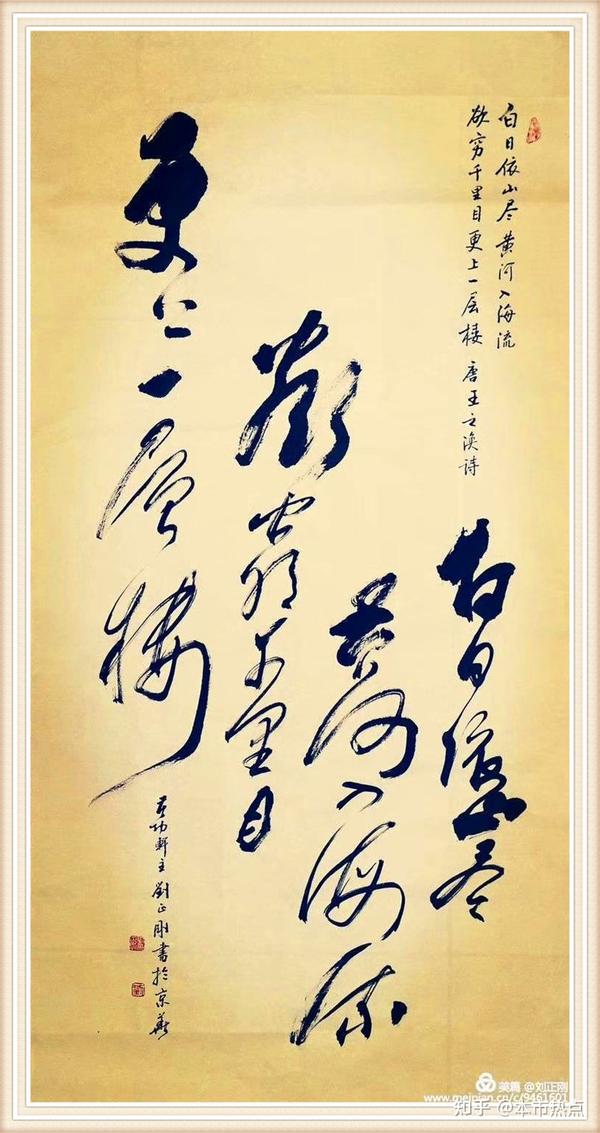 白日依山尽黄河入海流
欲穷千里目更上一层楼 唐王之涣诗
白日依山尽
黄河入海流
欲窮千里目
更上一層樓
功軒主劉正剛書於京華
美篇 @刘正刚
www.meipian.cn/c/9461601
知乎 @本市热点